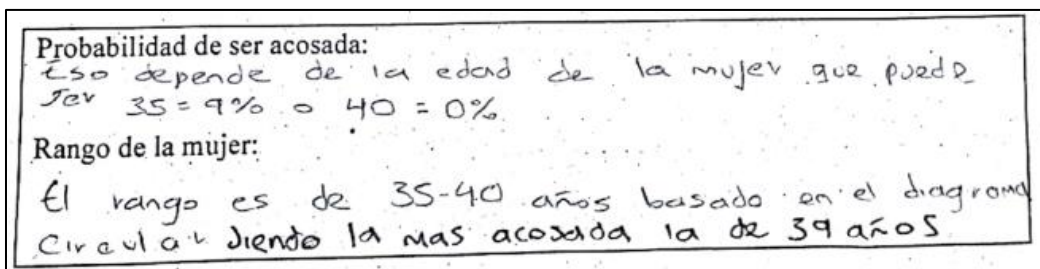 Probabilidad de ser acosada:
Eso depende de la edad de la mujer que puede
ser 35 = 9% o 40 = 0%
Rango de la mujer:
El rango es de 35-40 años basado en el diagrama
Circular siendo la mas acosada la de 39 años